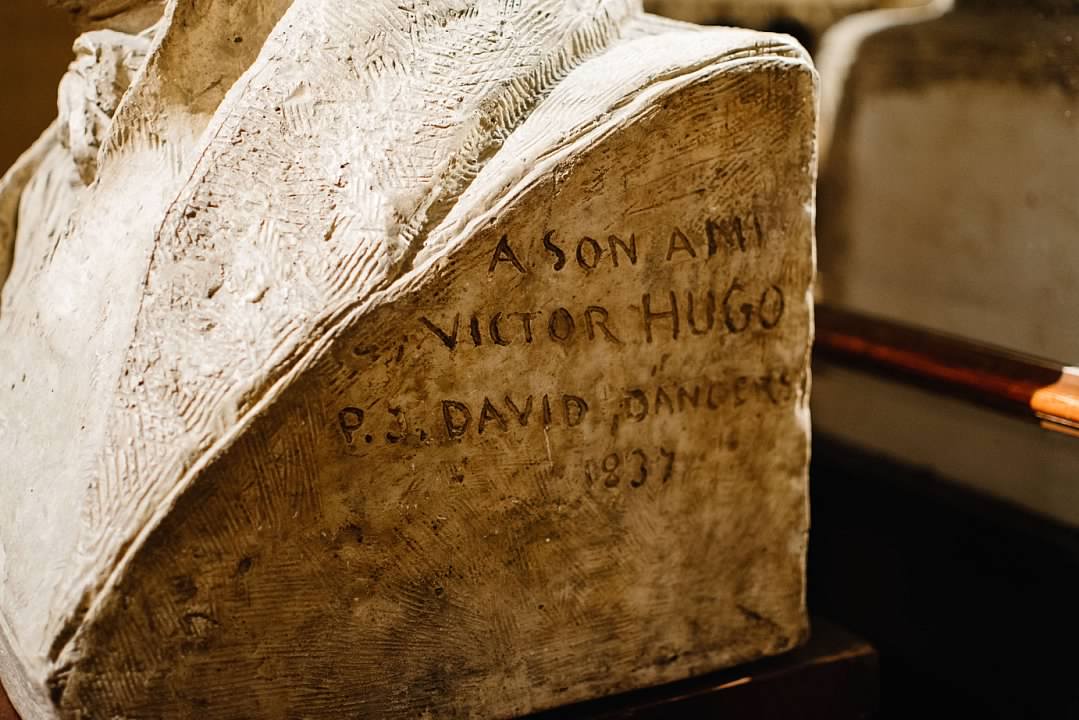 A SON AMI
VICTOR HUGO
P. J. DAVID D'ANGERS
1837